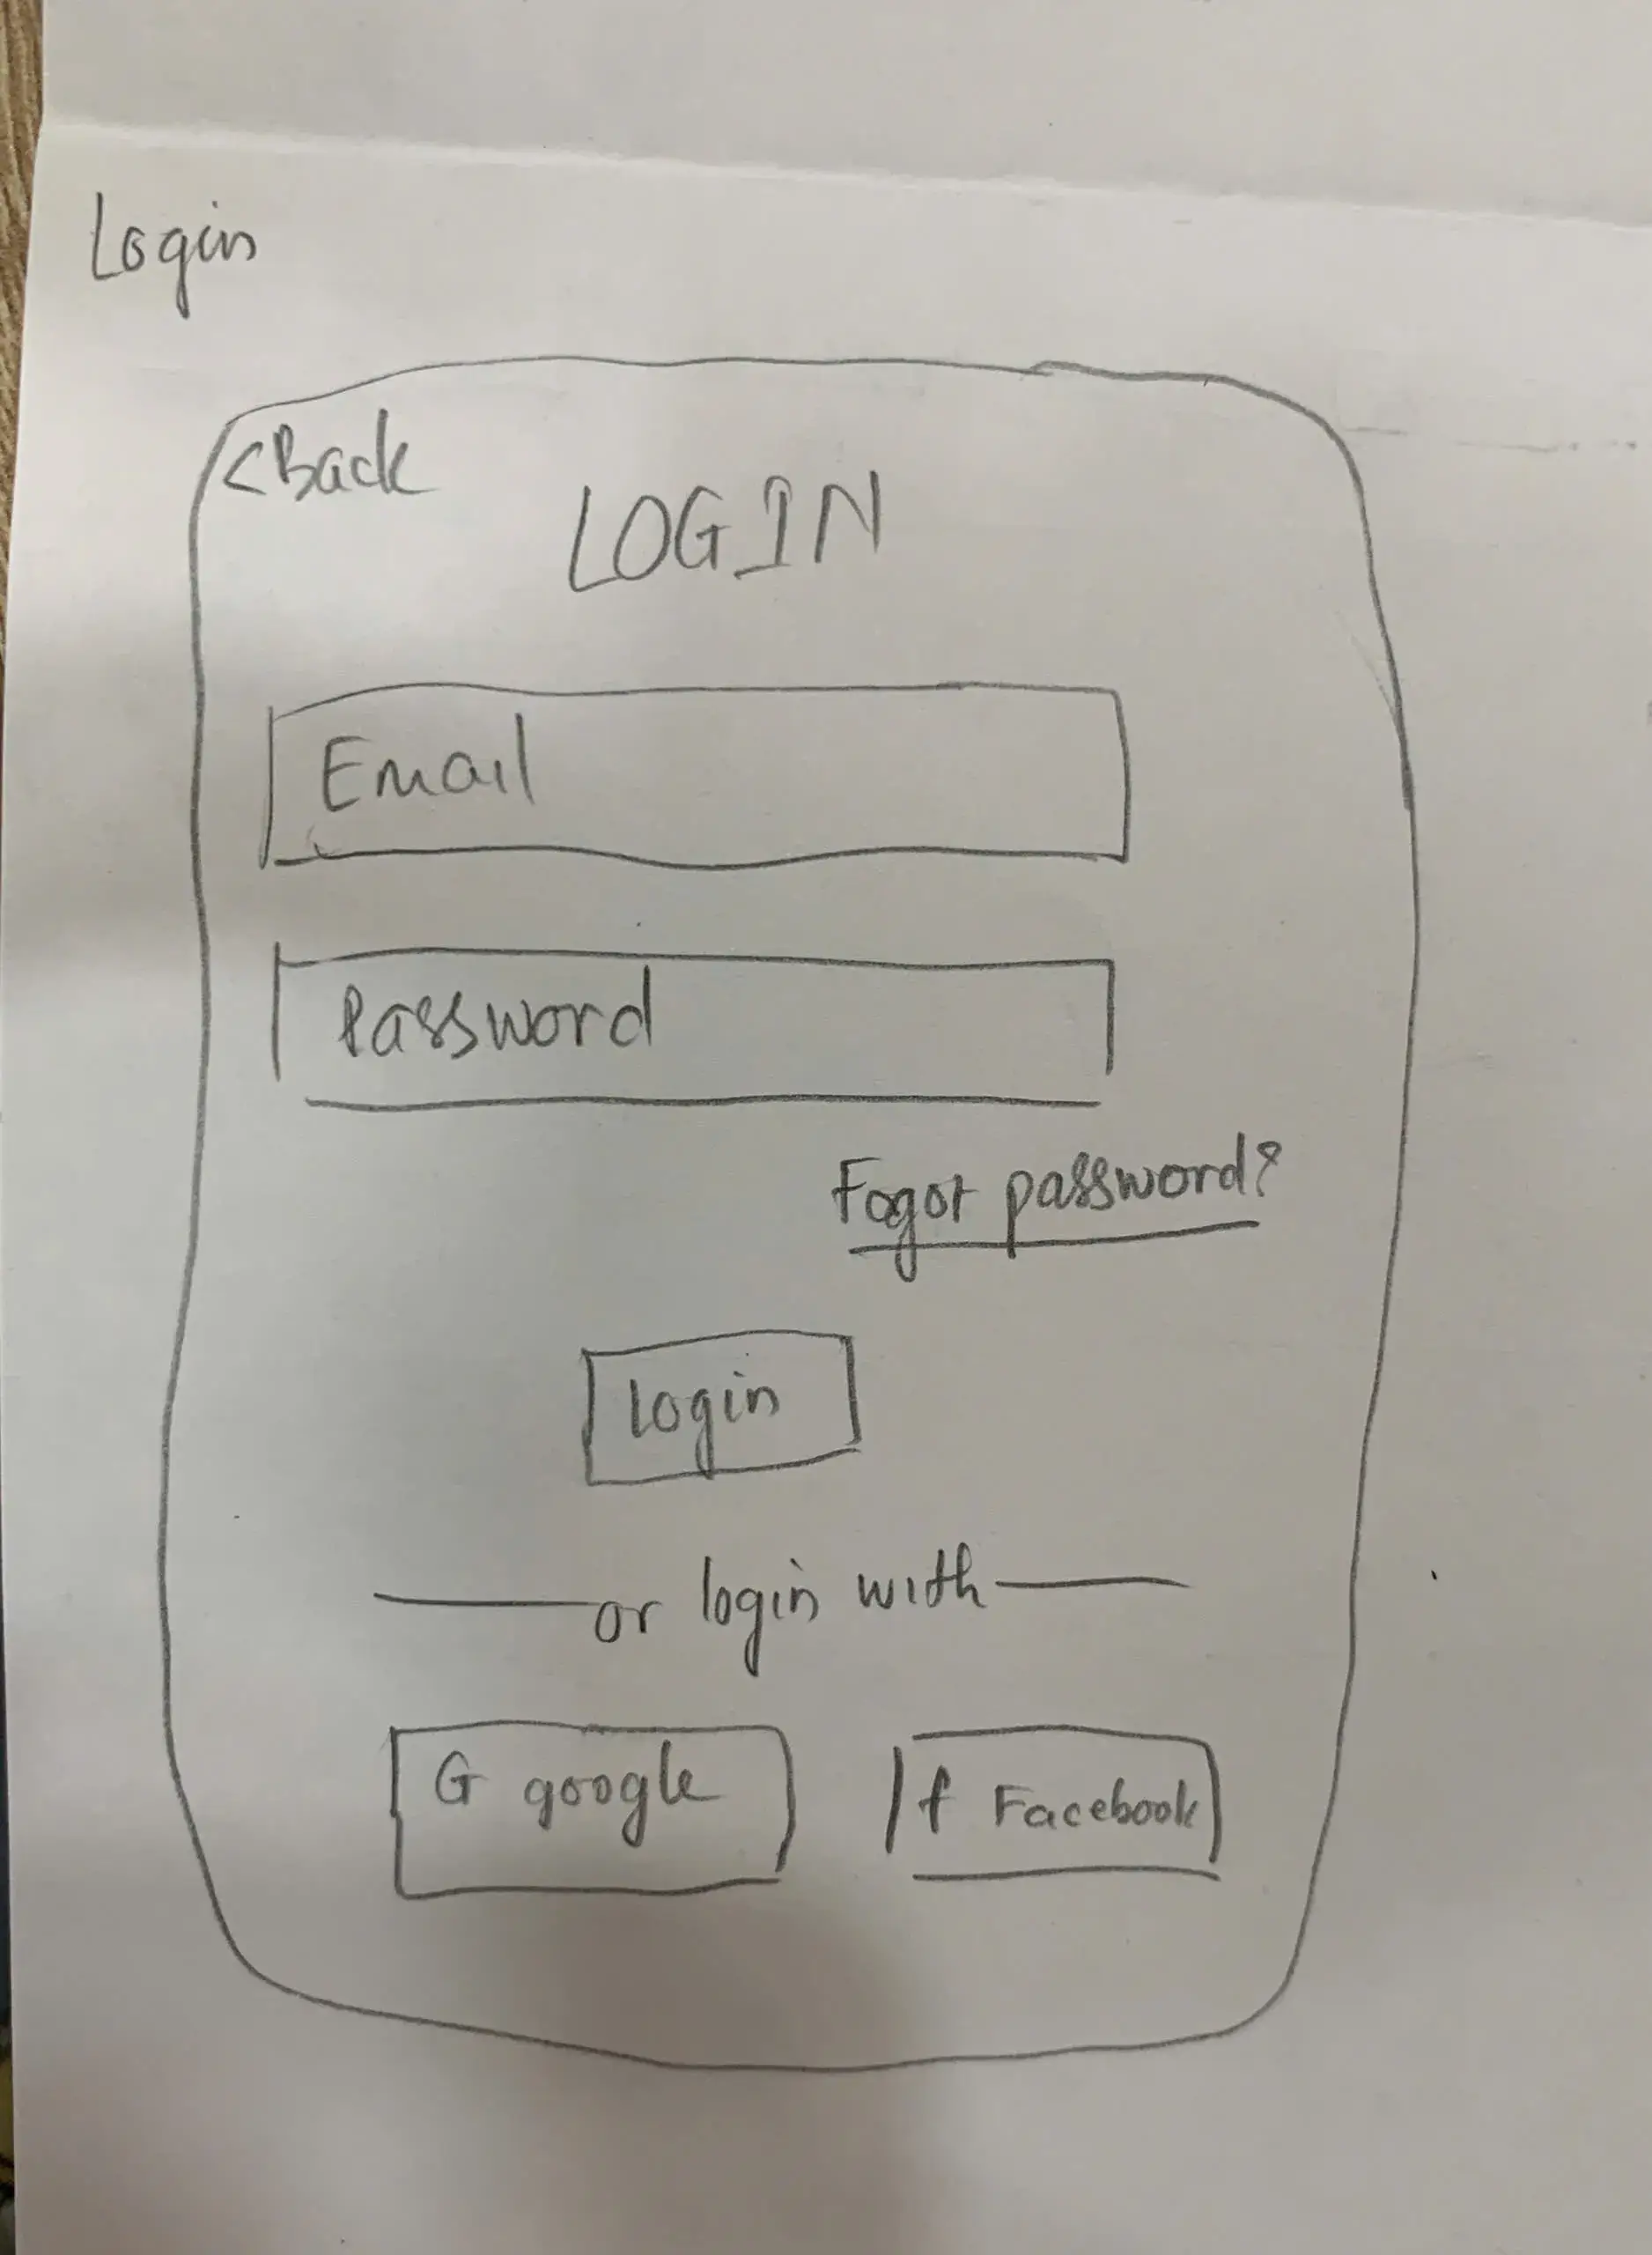 Login
<Back
LOGIN
Email
Password
Fogot password?
login
or login with
G google
f Facebook